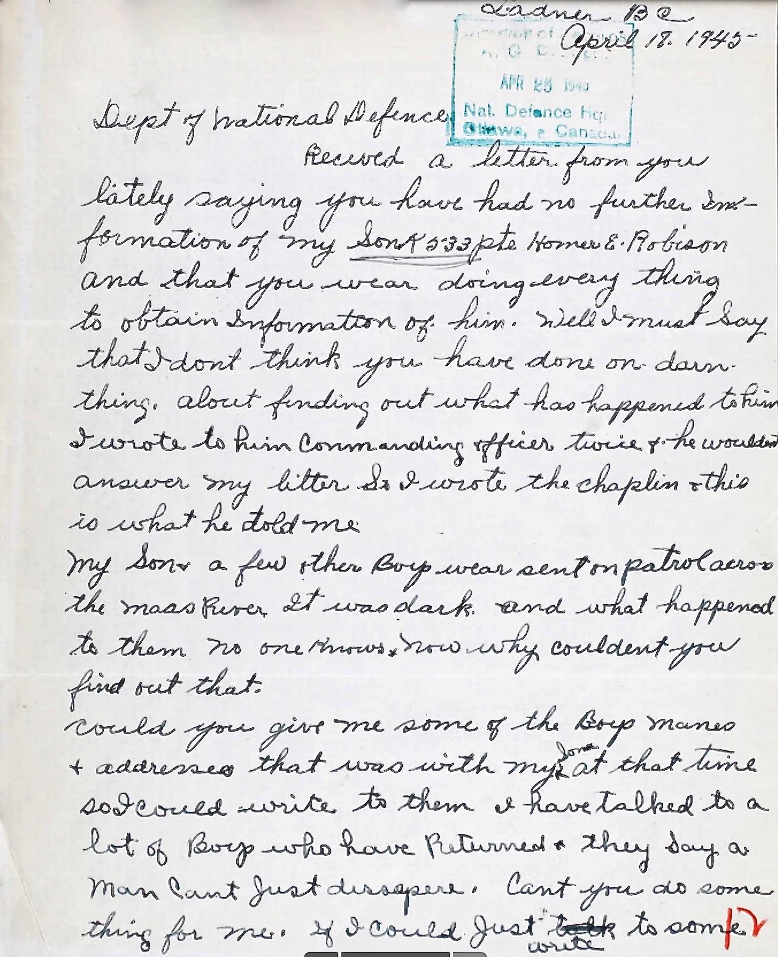 Ladner BC
April 18. 1945
Director of
APR 25 1945
Nat. Defence Hq.
Ottawa, Canada.
Dept of National Defence
Recieved a letter from you
lately saying you have had no further In-
formation of my Son K533 pte Homer E. Robison
and that you wear doing every thing
to obtain Information of him. Well I must Say
that I dont think you have done on darn
thing. about finding out what has happened to him
I wrote to him Commanding officer twice & he wouldent
answer my litter So I wrote the chaplin & this
is what he told me
My Son & a few other Boys wear sent on patrol across
the maas River. It was dark and what happened
to them no one knows. Now why couldent you
find out that.
could you give me some of the Boys manes
& addresses that was with my Son at that time
so I could write to them I have talked to a
lot of Boys who have Returned & they Say a
Man Cant Just dissapere. Cant you do some
thing for me. If I could Just write to some
12